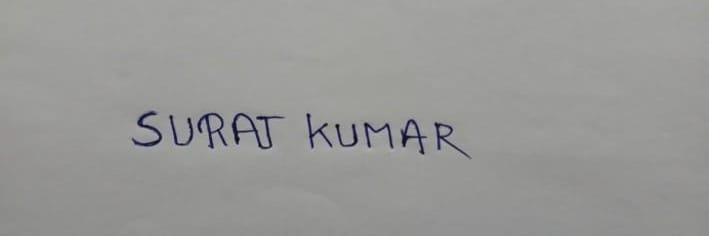 SURAT KUMAR